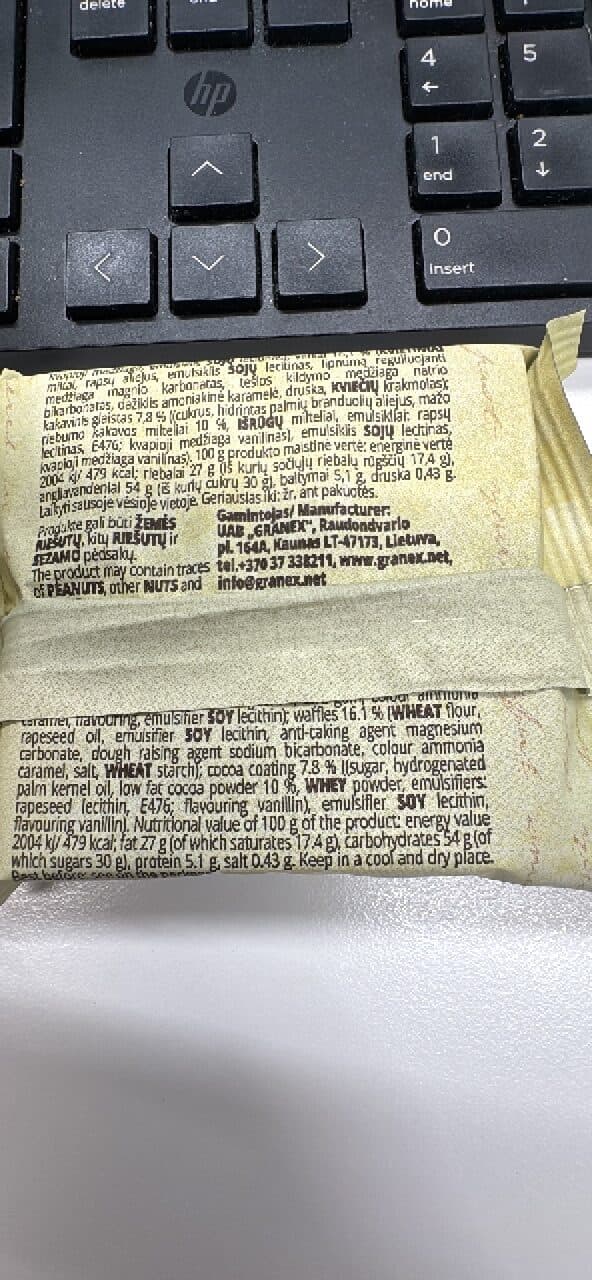 delete
home
4
5
hp
1
end
2
0
Insert
miltai, rapsų aliejus, emulsiklis SOJŲ lecitinas, lipnumą reguliuojanti
medžiaga magnio karbonatas, tešlos kildymo medžiaga natrio
bikarbonatas, dažiklis amoniakinė karamelė, druska, KVIEČIŲ krakmolas);
kakavinis glaistas 7,8 % ((cukrus, hidrintas palmių branduolių aliejus, mažo
riebumo kakavos milteliai 10 %, IŠRŪGŲ milteliai, emulsikliai: rapsų
lecitinas, E476; kvapioji medžiaga vanilinas), emulsiklis SOJŲ lecitinas,
kvapioji medžiaga vanilinas). 100 g produkto maistinė vertė: energinė vertė
2004 kJ/ 479 kcal; riebalai 27 g (iš kurių sočiųjų riebalų rūgščių 17,4 g),
angliavandeniai 54 g (iš kurių cukrų 30 g), baltymai 5,1 g, druska 0,43 g.
Laikyti sausoje vėsioje vietoje. Geriausias iki: žr. ant pakuotės.
Produkte gali būti ŽEMĖS
RIEŠUTŲ, kitų RIEŠUTŲ ir
SEZAMO pėdsakų.
The product may contain traces
of PEANUTS, other NUTS and
Gamintojas/ Manufacturer:
UAB „GRANEX", Raudondvario
pl. 164A, Kaunas LT-47173, Lietuva,
tel.+370 37 338211, www.granex.net,
info@granex.net
colour ammonia
caramel, flavouring, emulsifier SOY lecithin); waffles 16.1 % (WHEAT flour,
rapeseed oil, emulsifier SOY lecithin, anti-caking agent magnesium
carbonate, dough raising agent sodium bicarbonate, colour ammonia
caramel, salt, WHEAT starch); cocoa coating 7.8 % ((sugar, hydrogenated
palm kernel oil, low fat cocoa powder 10 %, WHEY powder, emulsifiers:
rapeseed lecithin, E476; flavouring vanillin), emulsifier SOY lecithin,
flavouring vanillin). Nutritional value of 100 g of the product: energy value
2004 kJ/ 479 kcal; fat 27 g (of which saturates 17.4 g), carbohydrates 54 g (of
which sugars 30 g), protein 5.1 g, salt 0.43 g. Keep in a cool and dry place.
Best before: see on the